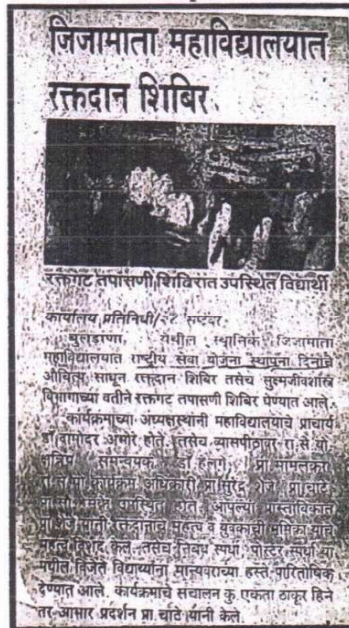 जिजामाता महाविद्यालयात
रक्तदान शिबिर
रक्तगट तपासणी शिबिरात उपस्थित विद्यार्थी
कार्यालय प्रतिनिधी/
बुलडाणा, येथील स्थानिक जिजामाता
महाविद्यालयात राष्ट्रीय सेवा योजना स्थापना दिनाचे
औचित्य साधून रक्तदान शिबिर तसेच सुक्ष्मजीवशास्त्र
विभागाच्या वतीने रक्तगट तपासणी शिबिर घेण्यात आले.
कार्यक्रमाच्या अध्यक्षस्थानी महाविद्यालयाचे प्राचार्य
डॉ.दामोदर अंभोरे होते. तसेच व्यासपीठावर रा.से.यो.
समन्वयक डॉ
कार्यक्रम अधिकारी प्रा.सुरेंद्र शेजे, प्रा.चाटे
उपस्थित होते. आपल्या प्रास्ताविकात
प्रा.शेजे यांनी रक्तदानाचे महत्व व युवकाची भूमिका याचे
महत्व विशद केले. तसेच निबंध स्पर्धा, पोस्टर स्पर्धा या
मधील विजेते विद्यार्थ्यांना मान्यवरांच्या हस्ते पारितोषिक
देण्यात आले. कार्यक्रमाचे संचालन कु. एकता ठाकूर हिने
तर आभार प्रदर्शन प्रा.चाटे यांनी केले.